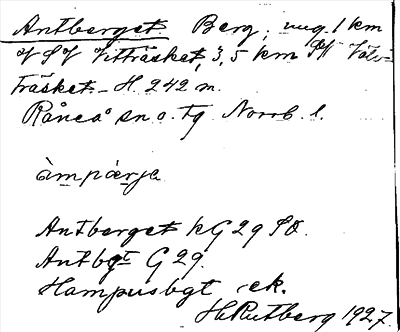 Antberget Berg, ung. 1 km
V SV Vitträsket, 3,5 km SV Valvträsket. H. 242 m.
Råneå sn o. tg Norrb. l.
àmpærje
Antberget kG 29 SO.
Antbgt G 29.
Hampusbgt ek.
H. Rutberg 1927.